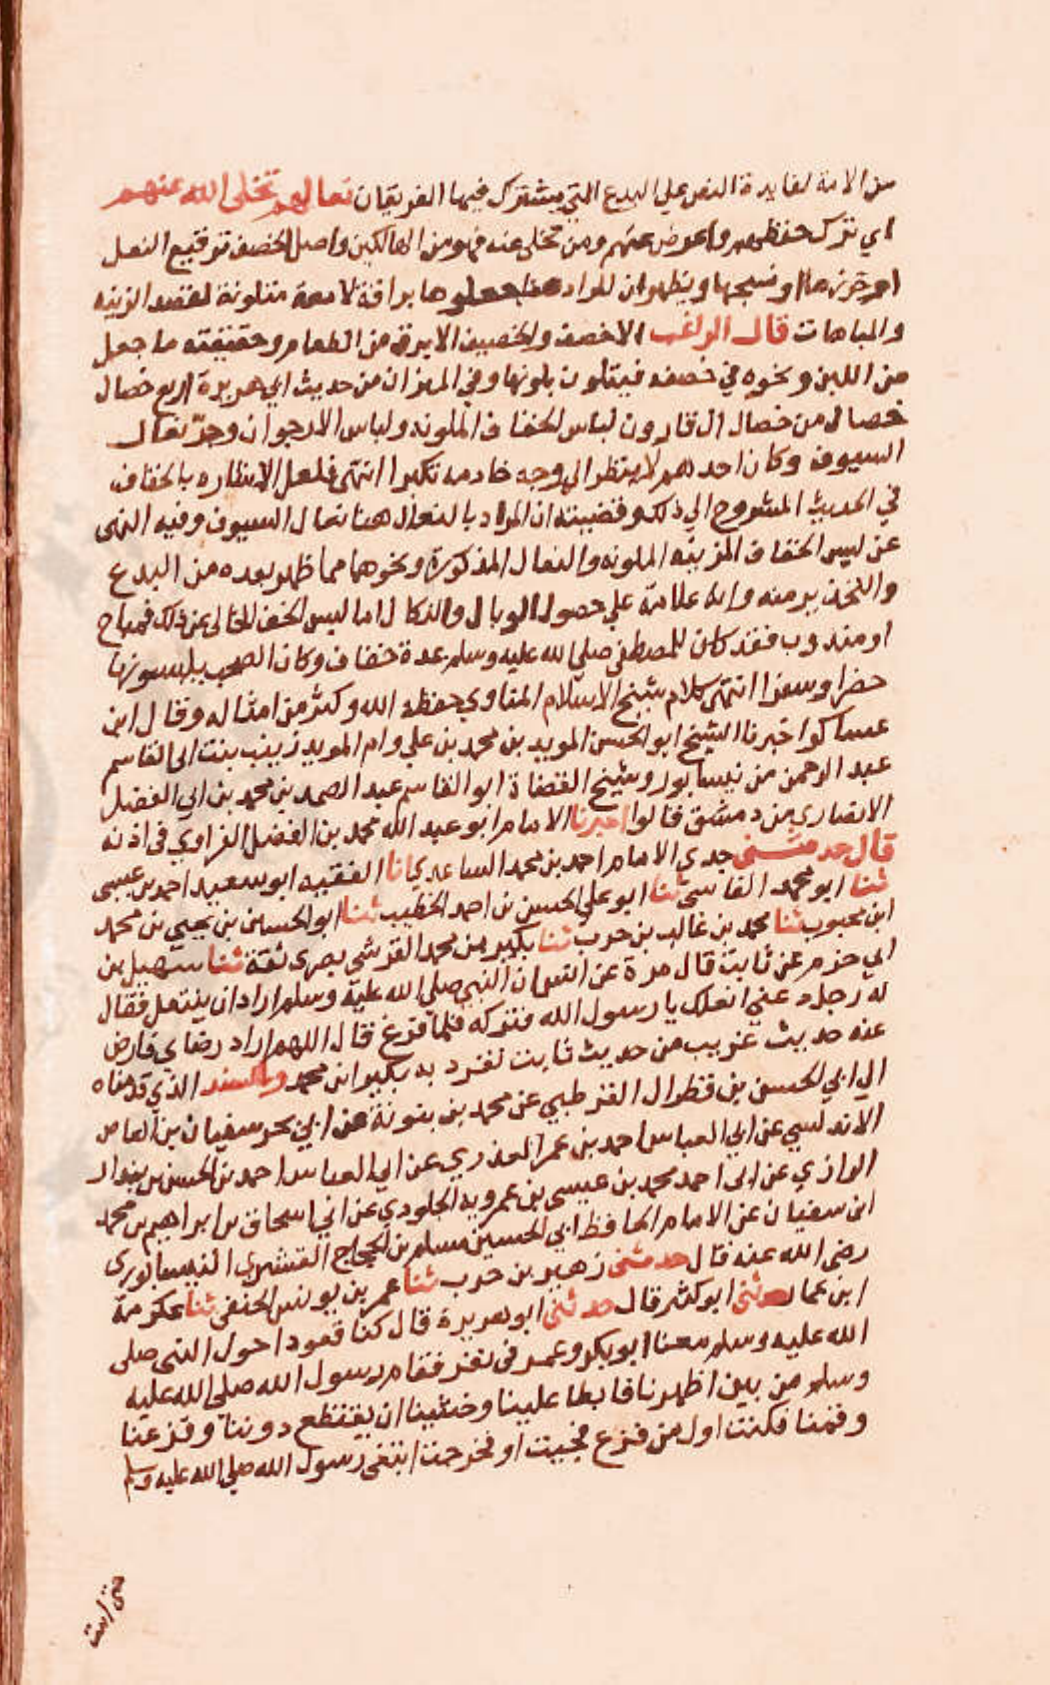 من الامة لفايدة النص علي البدع التي يشترك فيها الفريقان نعالهم تخلى الله عنهم
اي ترك حفظهم واعرض عنهم ومن تخلى عنه فهو من الهالكين واصل الخصف ترقيع النعل
او خرزها او نسجها ويظهر ان المراد هنا جعلوها براقة لامعة متلونة لقصد الزينه
والمباهات قال الراغب الاخصف والخصيف الابرق من الطعام وحقيقته ما جعل
من اللبن ونحوه في خصفه فيتلون بلونها وفي الميزان من حديث ابي هريرة اربع خصال
خصال من خصال ال قارون لباس الخفاف الملونه ولباس الارجوان وجر نعال
السيوف وكان احدهم لا ينظر الي وجه خادمه تكبرا انتهى فلعل الاشاره بالخفاف
في الحديث المشروح الي ذلك وقضيته ان المراد بالنعال هنا نعال السيوف وفيه النهى
عن لبس الخفاف المزينه الملونه والنعال المذكورة ونحوهما مما ظهر بعده من البدع
والتحذير منه وانه علامة علي حصول الوبال والنكال اما لبس الخف الخالى عن ذلك فمباح
او مندوب فقد كان للمصطفى صلي الله عليه وسلم عدة خفاف وكان الصحب يلبسونها
حضرا وسفرا انتهى كلام شيخ الاسلام المناوي حفظه الله وكثر من امثاله وقال ابن
عساكر اخبرنا الشيخ ابو الحسن المويد بن محمد بن علي وام المويد زينب بنت ابى القاسم
عبد الرحمن من نيسابور وشيخ القضاة ابو القاسم عبد الصمد بن محمد بن ابي الفضل
الانصاري من دمشق قالوا اخبرنا الامام ابو عبد الله محمد بن الفضل الفراوي في اذنه
قال حدثني جدي الامام احمد بن محمد الساعدي انا الفقيه ابو سعيد احمد بن عيسى
ثنا ابو محمد القاسم ثنا ابو علي الحسن بن احمد الخطيب ثنا ابو الحسين بن يحيى بن محمد
ابن محبوب ثنا محمد بن غالب بن حرب ثنا بكير بن محمد القرشي بصرى ثقة ثنا سهيل بن
ابي حزم عن ثابت قال مرة عن انس ان النبي صلي الله عليه وسلم اراد ان ينتعل فقال
له رجل دعني انعلك يا رسول الله فتركه فلما فرغ قال اللهم اراد رضاي فارض
عنه حديث غريب من حديث ثابت تفرد به بكير ابن محمد وبالسند الذي قدمناه
الي ابي الحسن بن قطرال القرطبي عن محمد بن بنونة عن ابي بحر سفيان بن العاص
الاندلسي عن ابي العباس احمد بن عمر العذري عن ابي العباس احمد بن الحسن بن بندار
الرازي عن ابي احمد محمد بن عيسى بن عمرويه الجلودي عن ابي اسحاق بن ابراهيم بن محمد
ابن سفيان عن الامام الحافظ ابي الحسين مسلم بن الحجاج القشيري النيسابورى
رضى الله عنه قال حدثنى زهير بن حرب ثنا عمر بن يونس الحنفى ثنا عكرمة
ابن عمار حدثني ابو كثير قال حدثني ابو هريرة قال كنا قعودا حول النبي صلي
الله عليه وسلم معنا ابو بكر وعمر في نفر فقام رسول الله صلي الله عليه
وسلم من بين اظهرنا فابطا علينا وخشينا ان يقتطع دوننا وفزعنا
وقمنا فكنت اول من فزع فخرجت ابتغي رسول الله صلي الله عليه وسلم
حتى اتيت